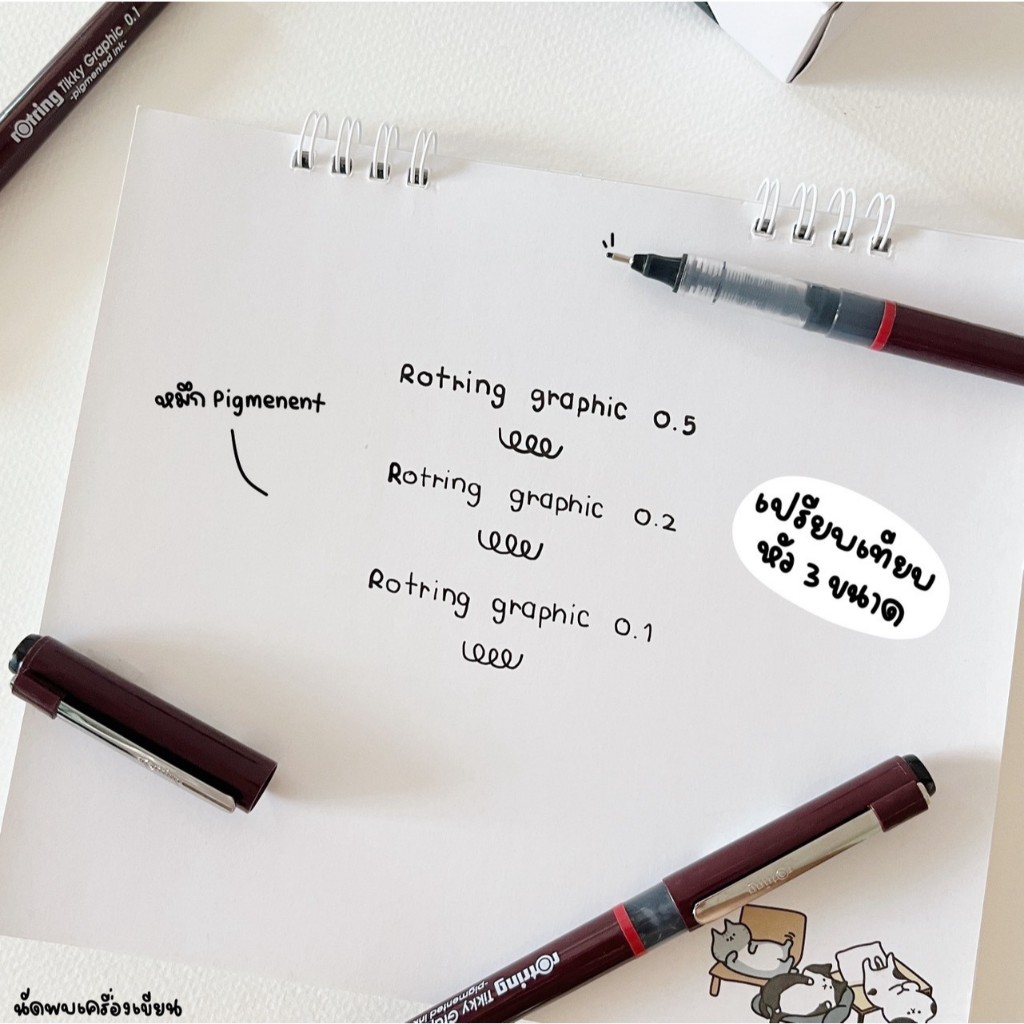 rotring Tikky Graphic 0.1
-pigmented ink-
Rotring graphic 0.5
หมึก Pigmenent
Rotring graphic 0.2
เปรียบเทียบ
หัว 3 ขนาด
Rotring graphic 0.1
rotring
rotring
rotring Tikky Gra
-pigmented ink-
นัดพบเครื่องเขียน